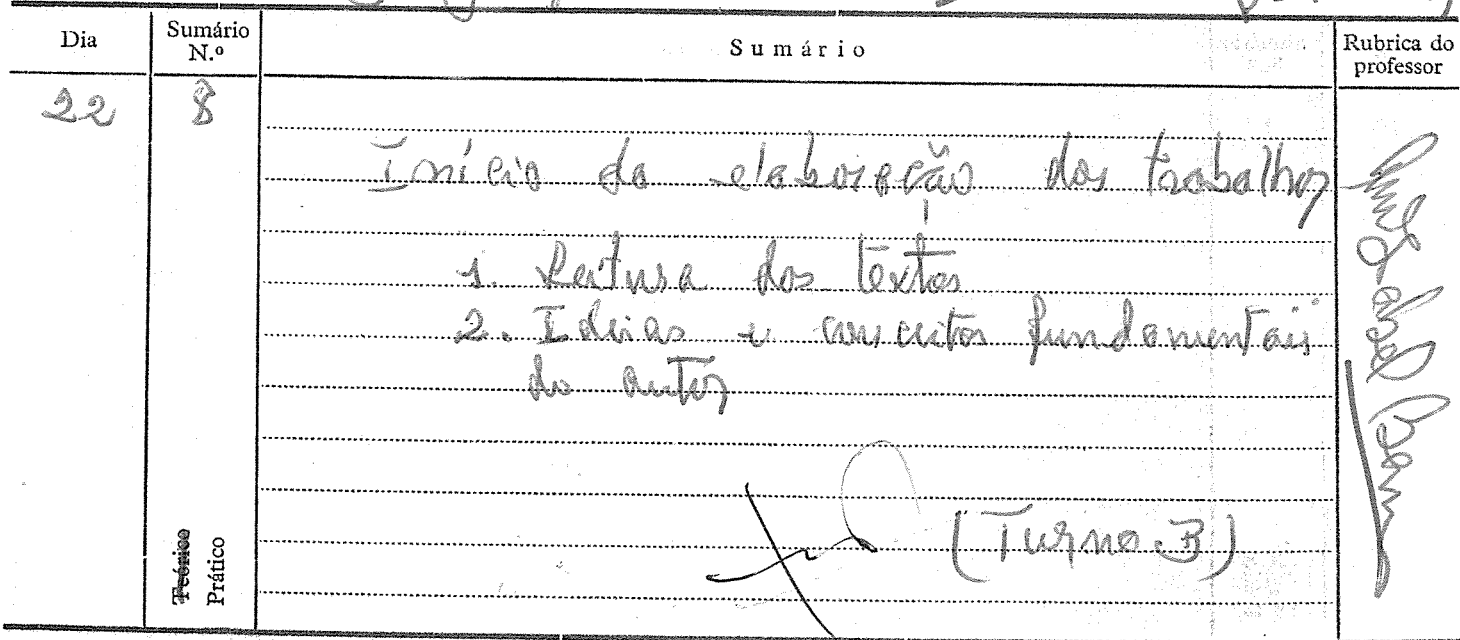 Dia
Sumário N.º
Sumário
Rubrica do professor
22
8
Início da elaboração dos trabalhos
1. Leitura dos textos
2. Ideias e conceitos fundamentais
do autor
(Turno B)
Teórico
Prático